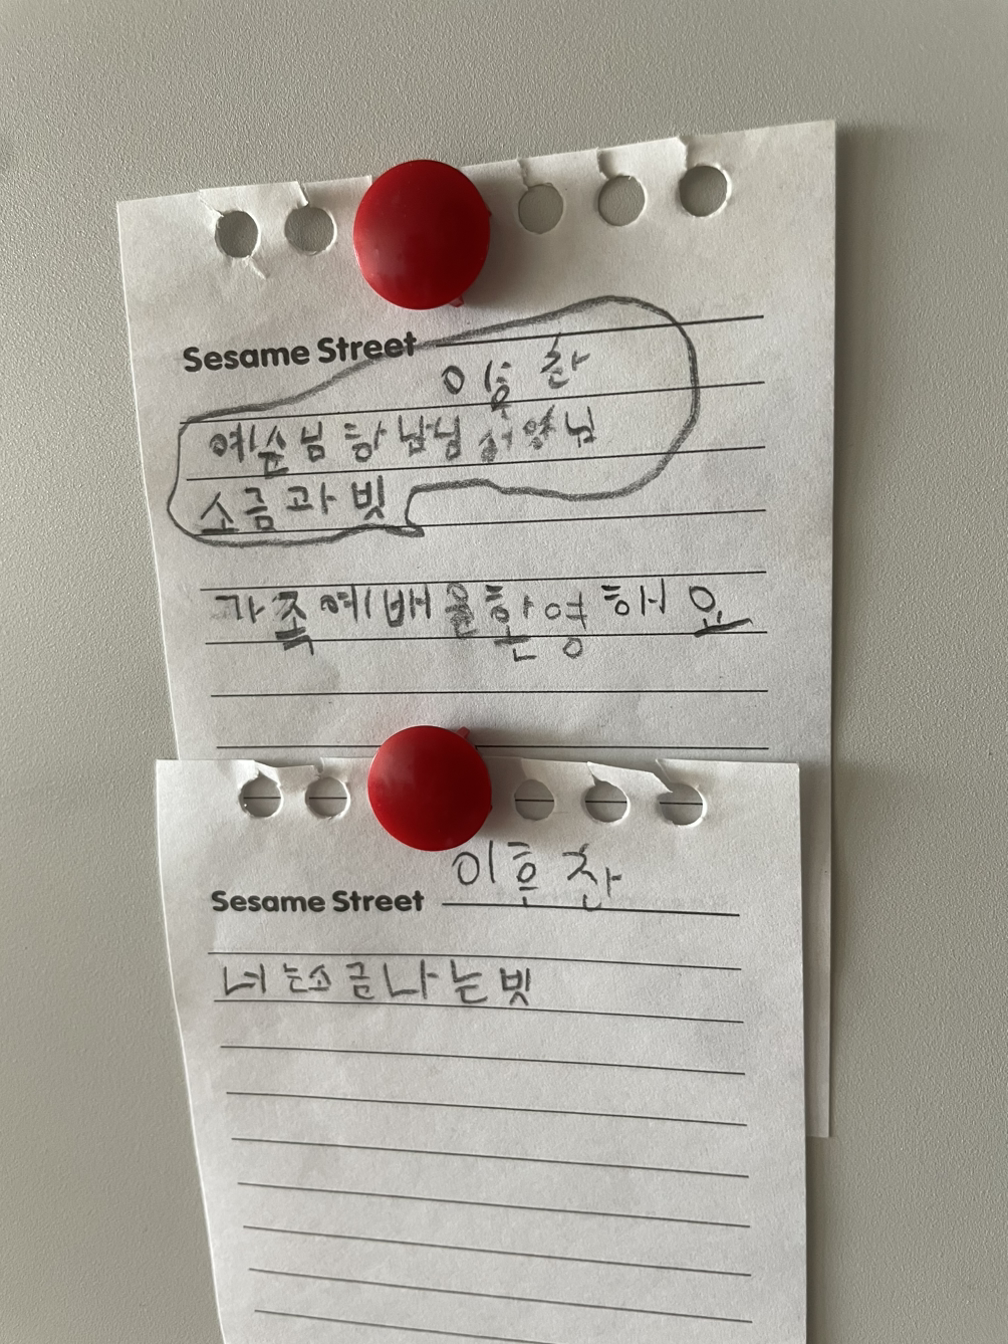 Sesame Street
이후찬
예순님 하남님 성양님
소금과 빛
가족 예배을 환영해요
이후찬
Sesame Street
너는소금나는빗